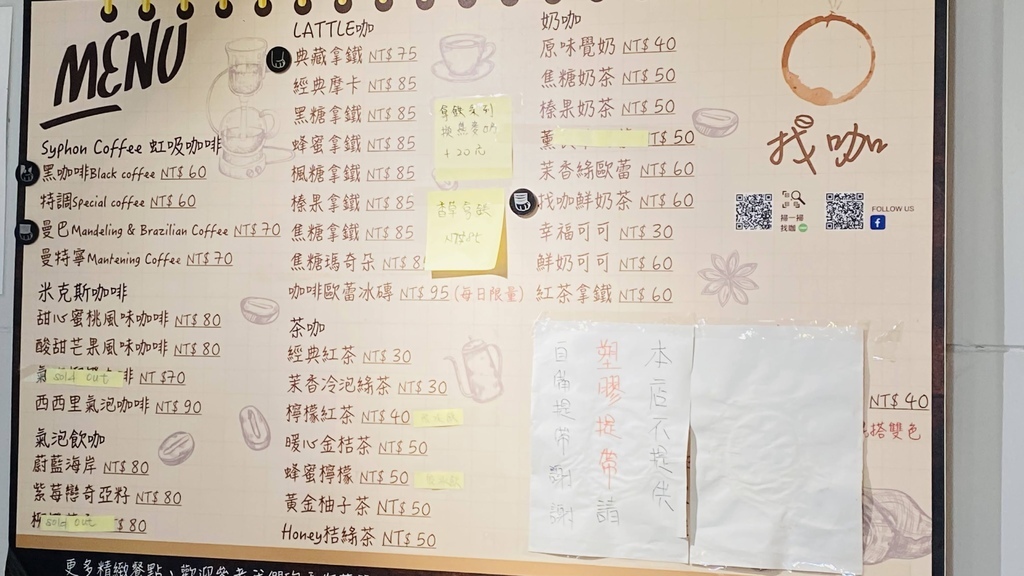 MENU
Syphon Coffee 虹吸咖啡
黑咖啡Black coffee NT$ 60
特調Special coffee NT$ 60
曼巴Mandeling & Brazilian Coffee NT$ 70
曼特寧Mantening Coffee NT$ 70
米克斯咖啡
甜心蜜桃風味咖啡 NT$ 80
酸甜芒果風味咖啡 NT$ 80
氣 sold out 啡 NT $70
西西里氣泡咖啡 NT$ 90
氣泡飲咖
蔚藍海岸 NT$ 80
紫莓戀奇亞籽 NT$ 80
sold out $ 80
LATTLE咖
典藏拿鐵 NT$ 75
經典摩卡 NT$ 85
黑糖拿鐵 NT$ 85
蜂蜜拿鐵 NT$ 85
楓糖拿鐵 NT$ 85
榛果拿鐵 NT$ 85
焦糖拿鐵 NT$ 85
焦糖瑪奇朵 NT$ 8
咖啡歐蕾冰磚 NT$ 95 (每日限量)
拿鐵系列
換燕麥奶
+20元
茶咖
經典紅茶 NT$ 30
茉香冷泡綠茶 NT$ 30
檸檬紅茶 NT$ 40
暖心金桔茶 NT$ 50
蜂蜜檸檬 NT$ 50
黃金柚子茶 NT$ 50
Honey桔綠茶 NT$ 50
奶咖
原味覺奶 NT$ 40
焦糖奶茶 NT$ 50
榛果奶茶 NT$ 50
薰 T$ 50
茉香綠歐蕾 NT$ 60
找咖鮮奶茶 NT$ 60
幸福可可 NT$ 30
鮮奶可可 NT$ 60
紅茶拿鐵 NT$ 60
找咖
掃一掃
找咖
FOLLOW US
本店不提供
塑膠提帶請
自備提帶謝謝
NT$ 40
搭雙色
更多精緻餐點、歡迎參考